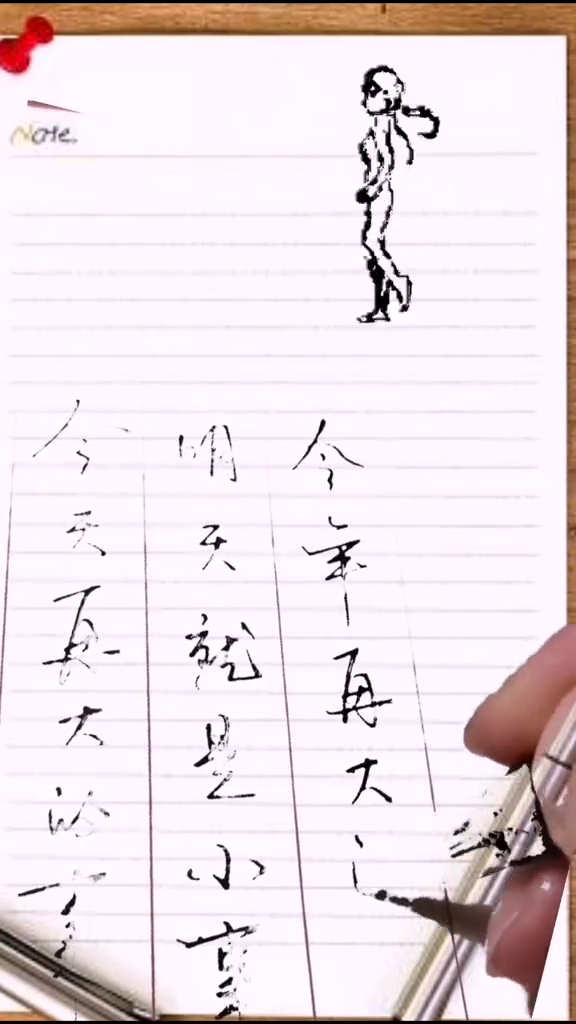 Note.
今天再大的事
明天就是小事
今年再大